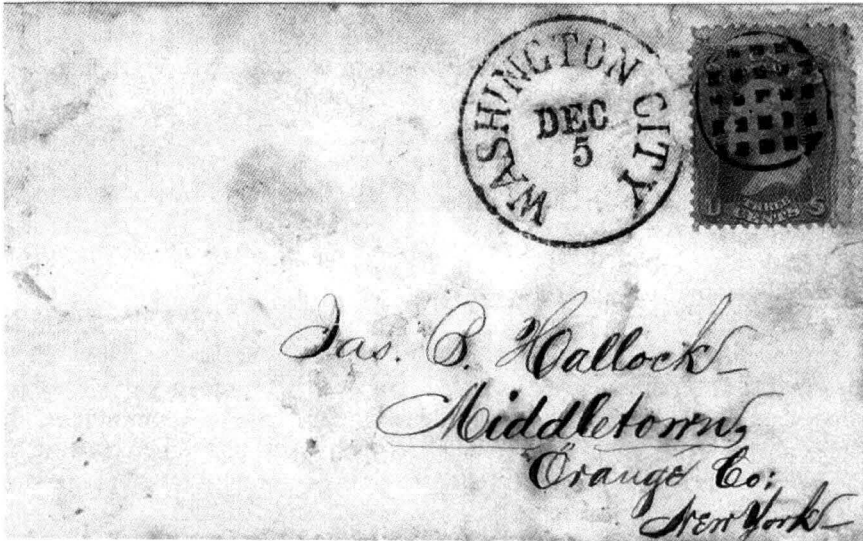 WASHINGTON CITY
DEC
5
U THREE CENTS S
Jas. B. Hallock
Middletown,
Orange Co:
New York